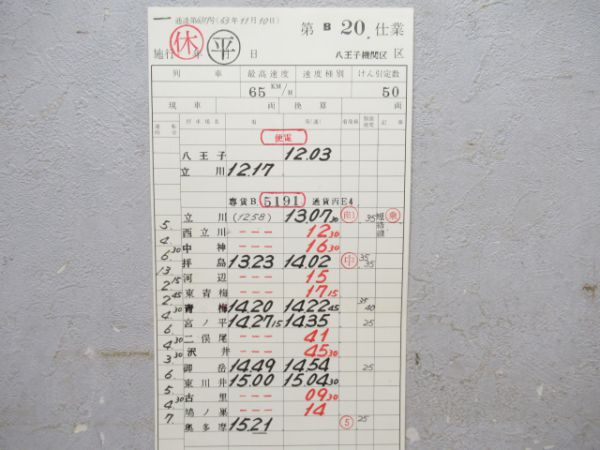 第 B 20. 仕業
休 平
施行 年 月 日 八王子機関区 区
列車 最高速度 速度種別 けん引定数
65 KM/H 50
現車 両 換算 両
停車場名 着 発(通) 着発線 制限速度 記事
便電
八王子 12.03
立川 12.17
専貨B. 5191 通貨丙E4
立川 (12.58) 13.07 30 35
5. 西立川 --- 12 30
4. 中神 --- 16 30
6.30 拝島 13.23 14.02 中 35 35
13. 河辺 --- 15
2.15 東青梅 --- 17 15
2.45 青梅 14.20 14.22 45 35 40
4.30 宮ノ平 14.27 15 14.35 25
6. 二俣尾 --- 41
4.30 沢井 --- 45 30
3. 御岳 14.49 14.54 25
6. 東川井 15.00 15.04 30
5. 古里 --- 09 30
4.30 鳩ノ巣 --- 14
7. 奥多摩 15.21 5 25